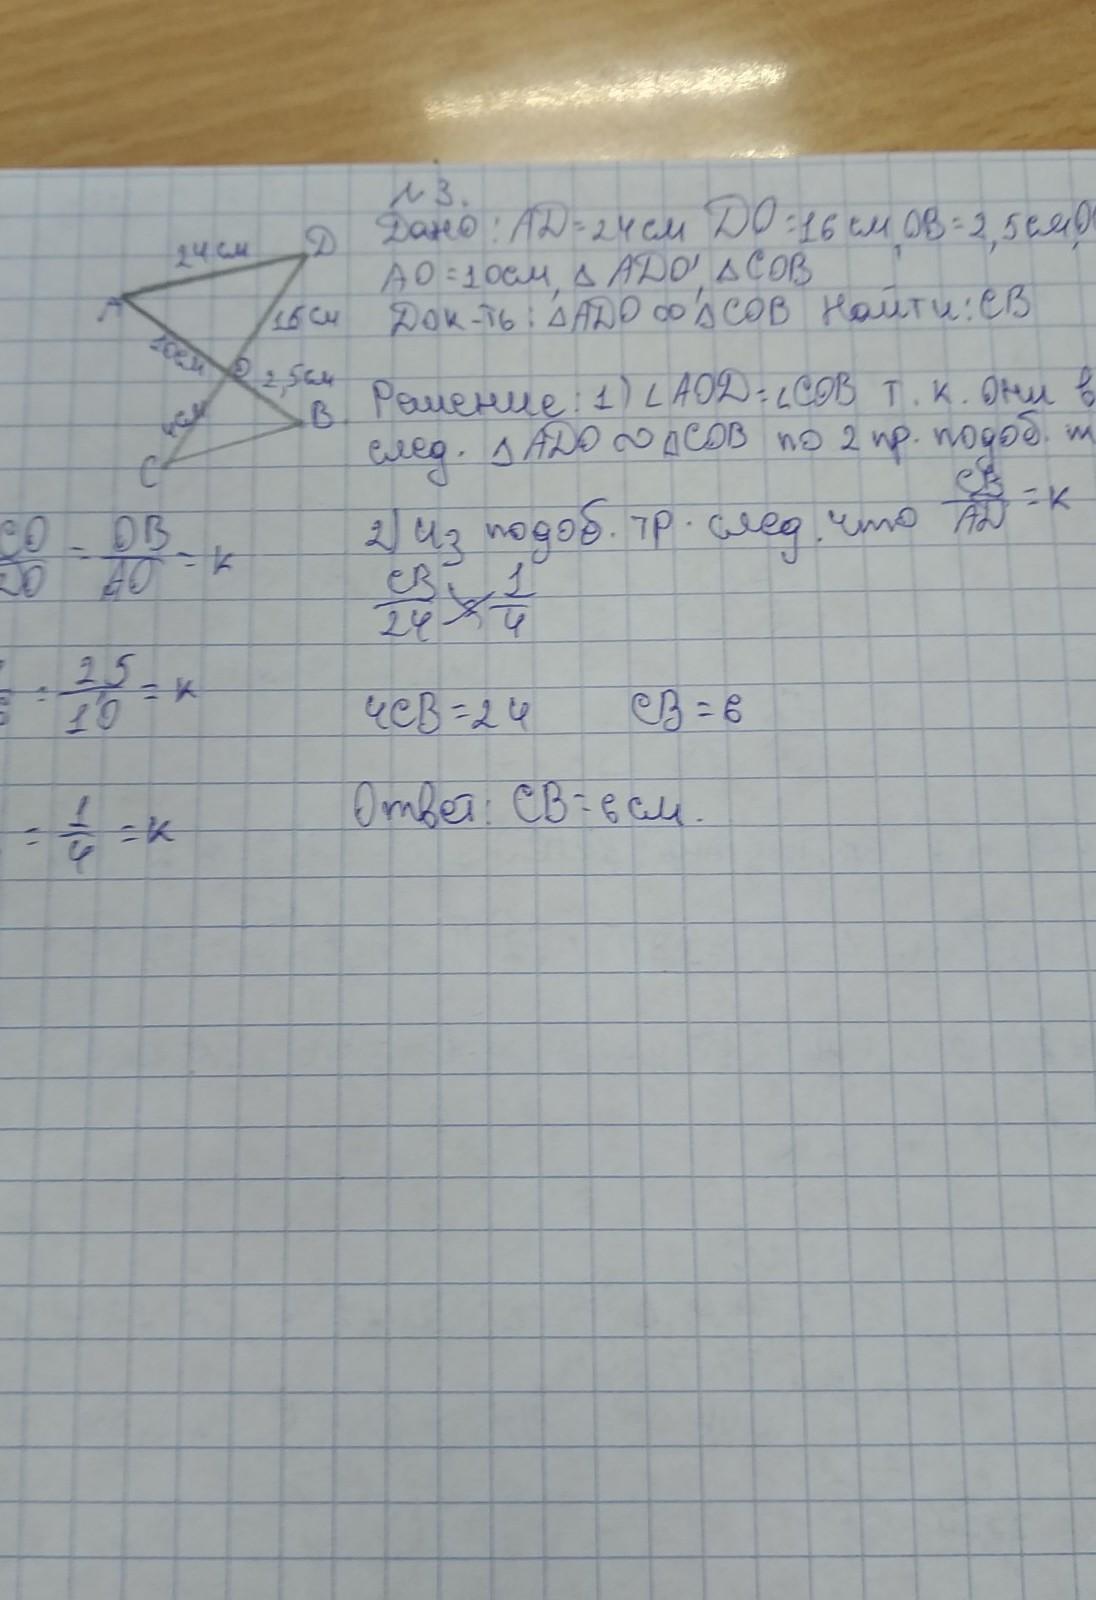 №3.
Дано: AD=24см DO=16см, OB=2,5см,
AO=10см, △ADO, △COB
Док-ть: △ADO∞△COB Найти: CB
24см
D
A
16см
10см
O
2,5см
B
4см
C
Решение: 1) ∠AOD=∠COB т.к. они в
след. △ADO∞△COB по 2 пр. подоб. т
CO/DO = OB/AO = к
2) Из подоб. тр. след. что CB/AD = к
CB/24 = 1/4
= 25/10 = к
4CB=24 CB=6
= 1/4 = к
Ответ: CB=6см.